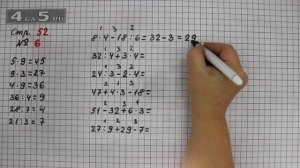 4.5.ru
Стр. 52
№ 6
5·9=45
9·3=27
4·9=36
36:4=9
28:7=4
21:3=7
1 3 2
8·4-18:6=32-3=29
1 3 2
32:4+3·4=
1 3 2
24:3-2·4=
2 1 3
47+4·3-18=
2 3 1
51-32+6·3=
1 2 3
27:9+29-7=